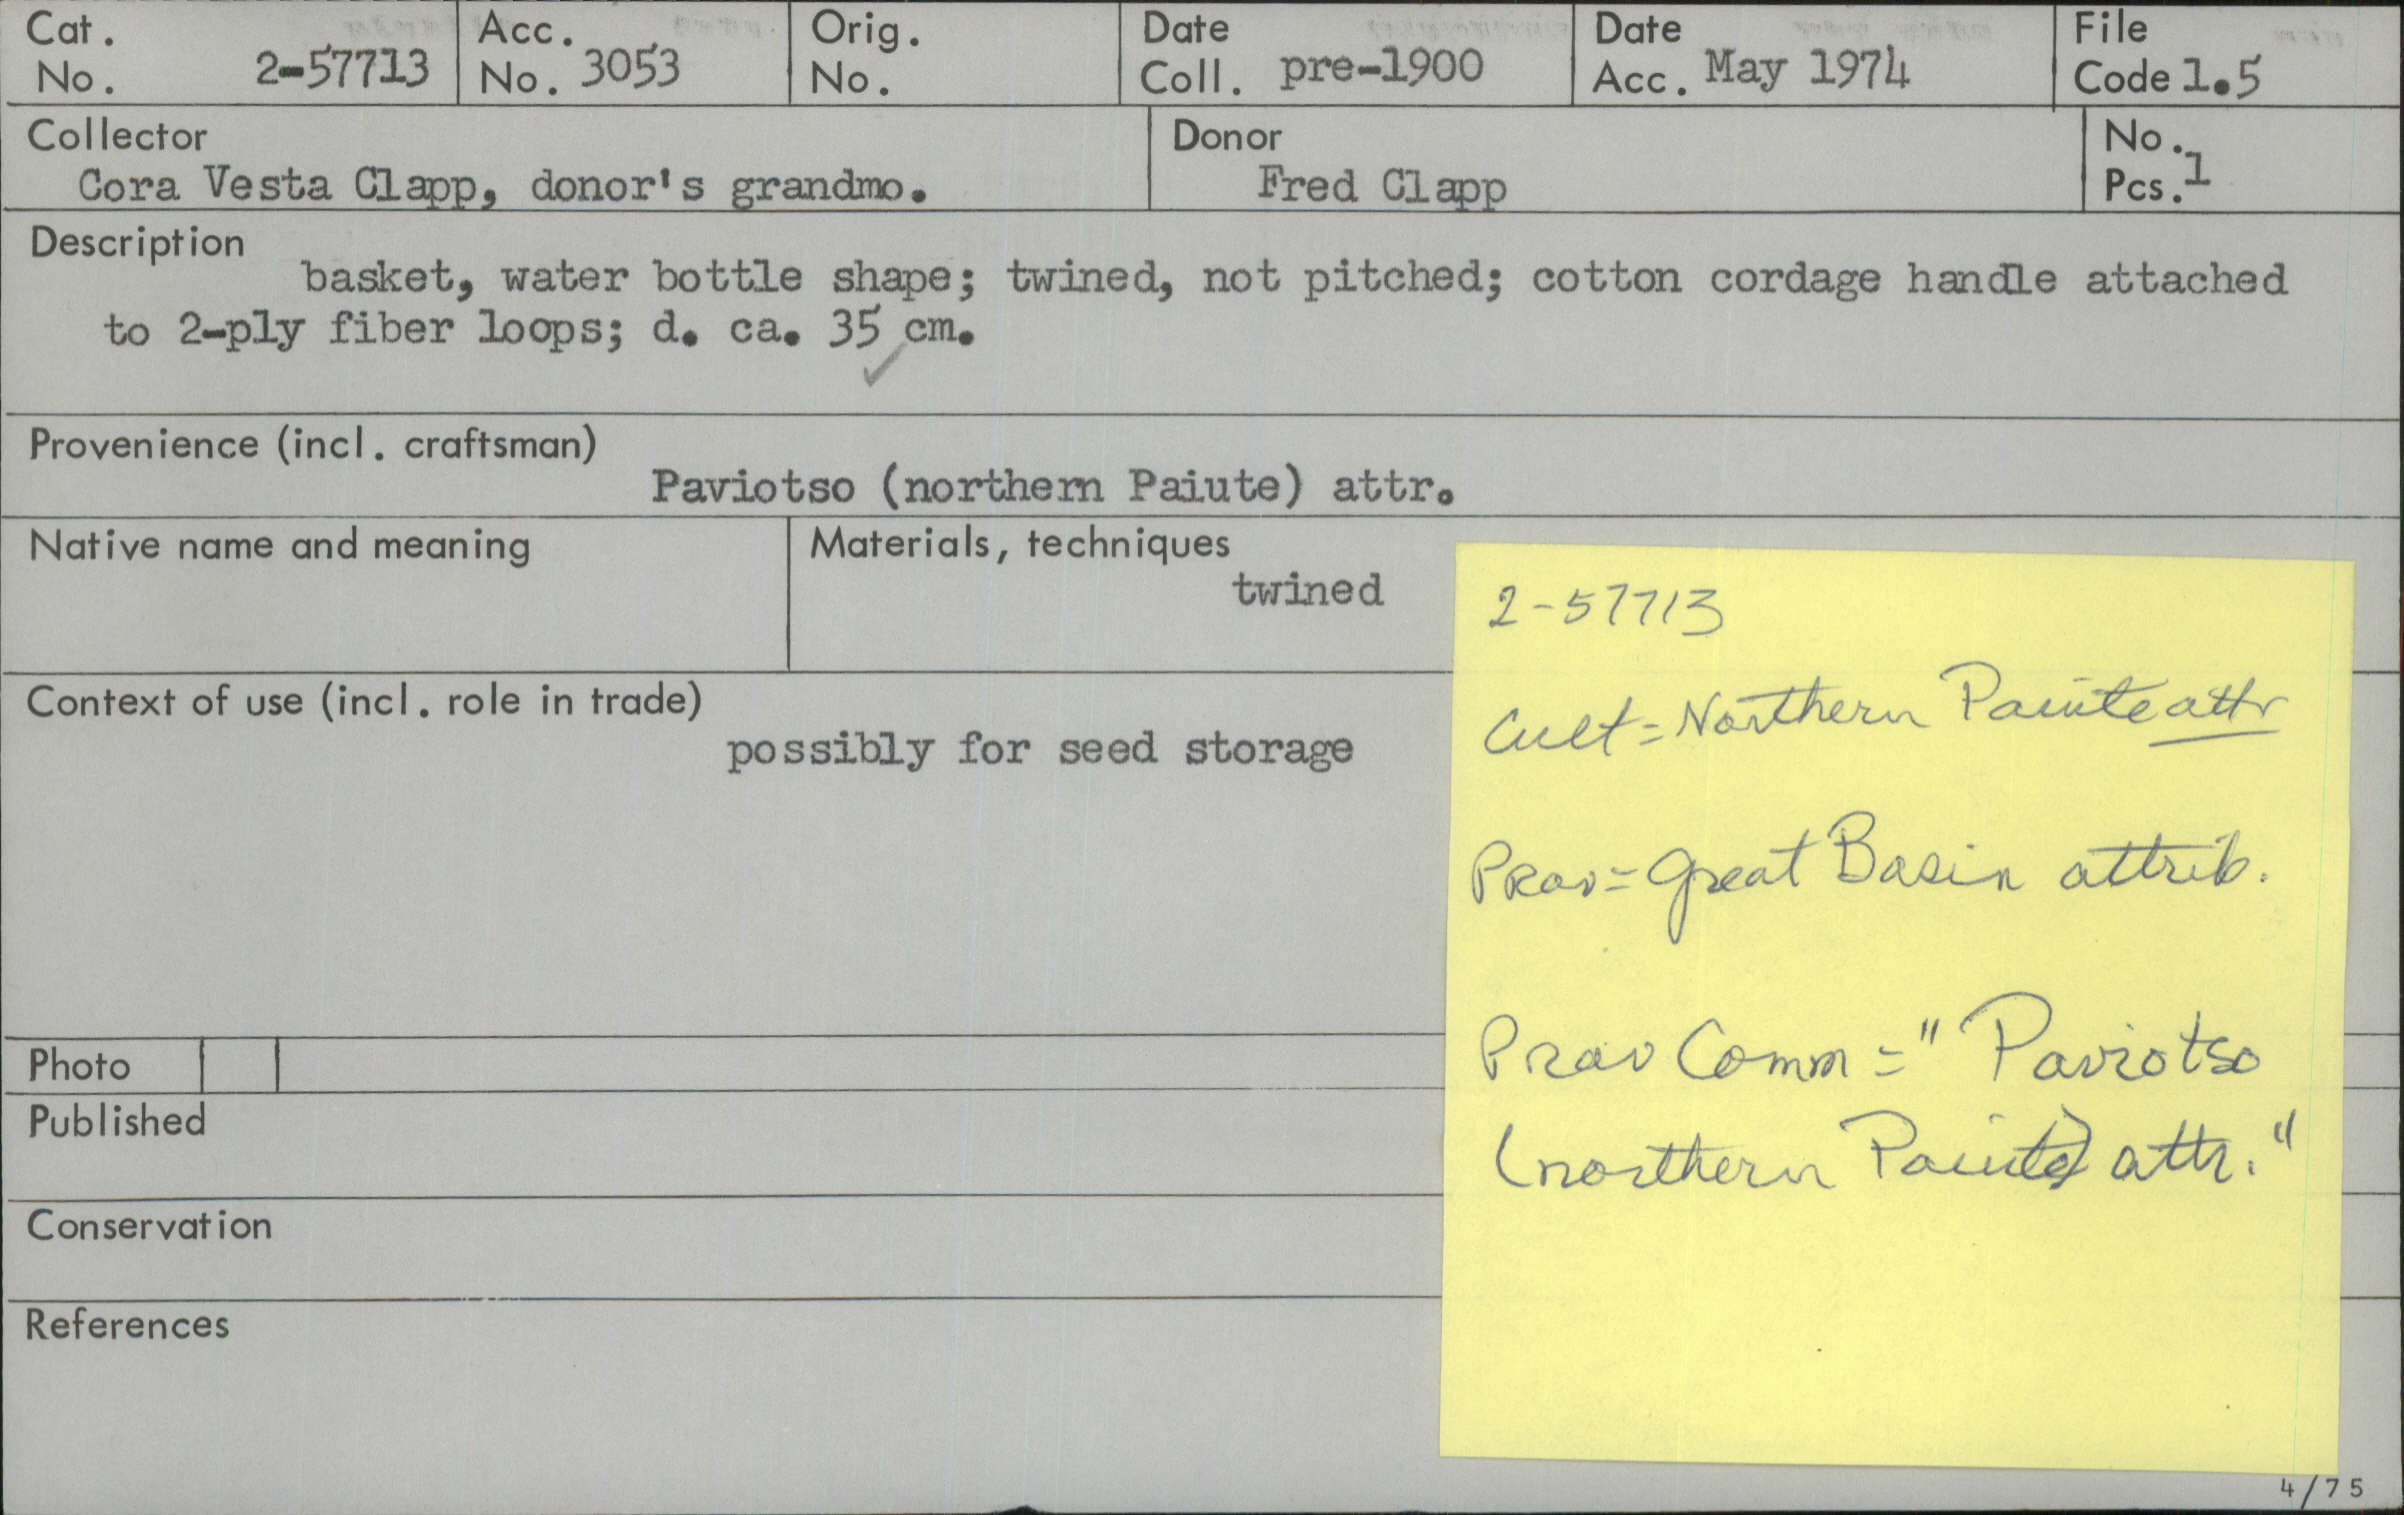 Cat. No. 2-57713
Acc. No. 3053
Orig. No.
Date Coll. pre-1900
Date Acc. May 1974
File Code 1.5
Collector
Cora Vesta Clapp, donor's grandmo.
Donor
Fred Clapp
No. Pcs. 1
Description
basket, water bottle shape; twined, not pitched; cotton cordage handle attached
to 2-ply fiber loops; d. ca. 35 cm.
Provenience (incl. craftsman)
Paviotso (northern Paiute) attr.
Native name and meaning
Materials, techniques
twined
Context of use (incl. role in trade)
possibly for seed storage
Photo
Published
Conservation
References
2-57713
Cult = Northern Paiute attr
Prov = Great Basin attrib.
Prov Comm = " Paviotso
(northern Paiute) attr. "
4/75